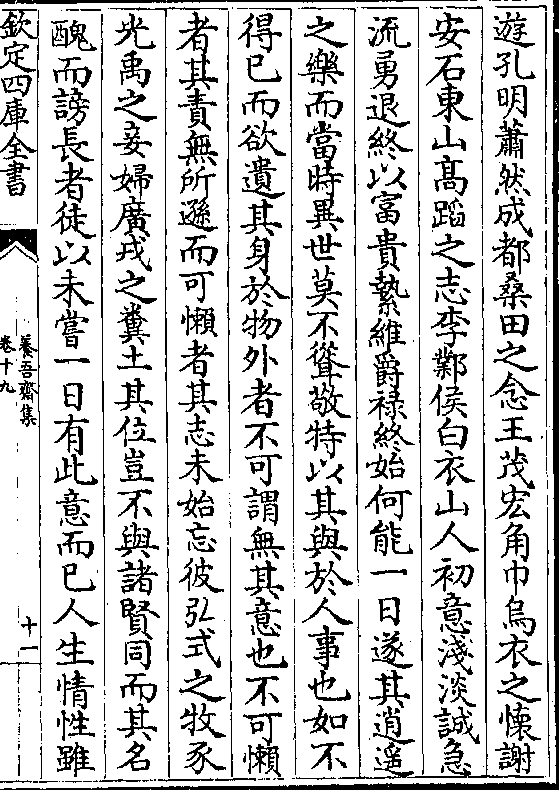 遊孔明蕭然成都桑田之念王茂宏角巾烏衣之懷謝
安石東山高蹈之志李鄴侯白衣山人初意淺淡誠急
流勇退終以富貴縶維爵祿終始何能一日遂其逍遥
之樂而當時異世莫不聳敬特以其與於人事也如不
得已而欲遺其身於物外者不可謂無其意也不可懶
者其責無所遜而可懶者其志未始忘彼弘式之牧豕
光禹之妾婦廣戎之糞土其位豈不與諸賢同而其名
醜而謗長者徒以未嘗一日有此意而已人生情性雖
欽定四庫全書
養吾齋集
卷十九
十一